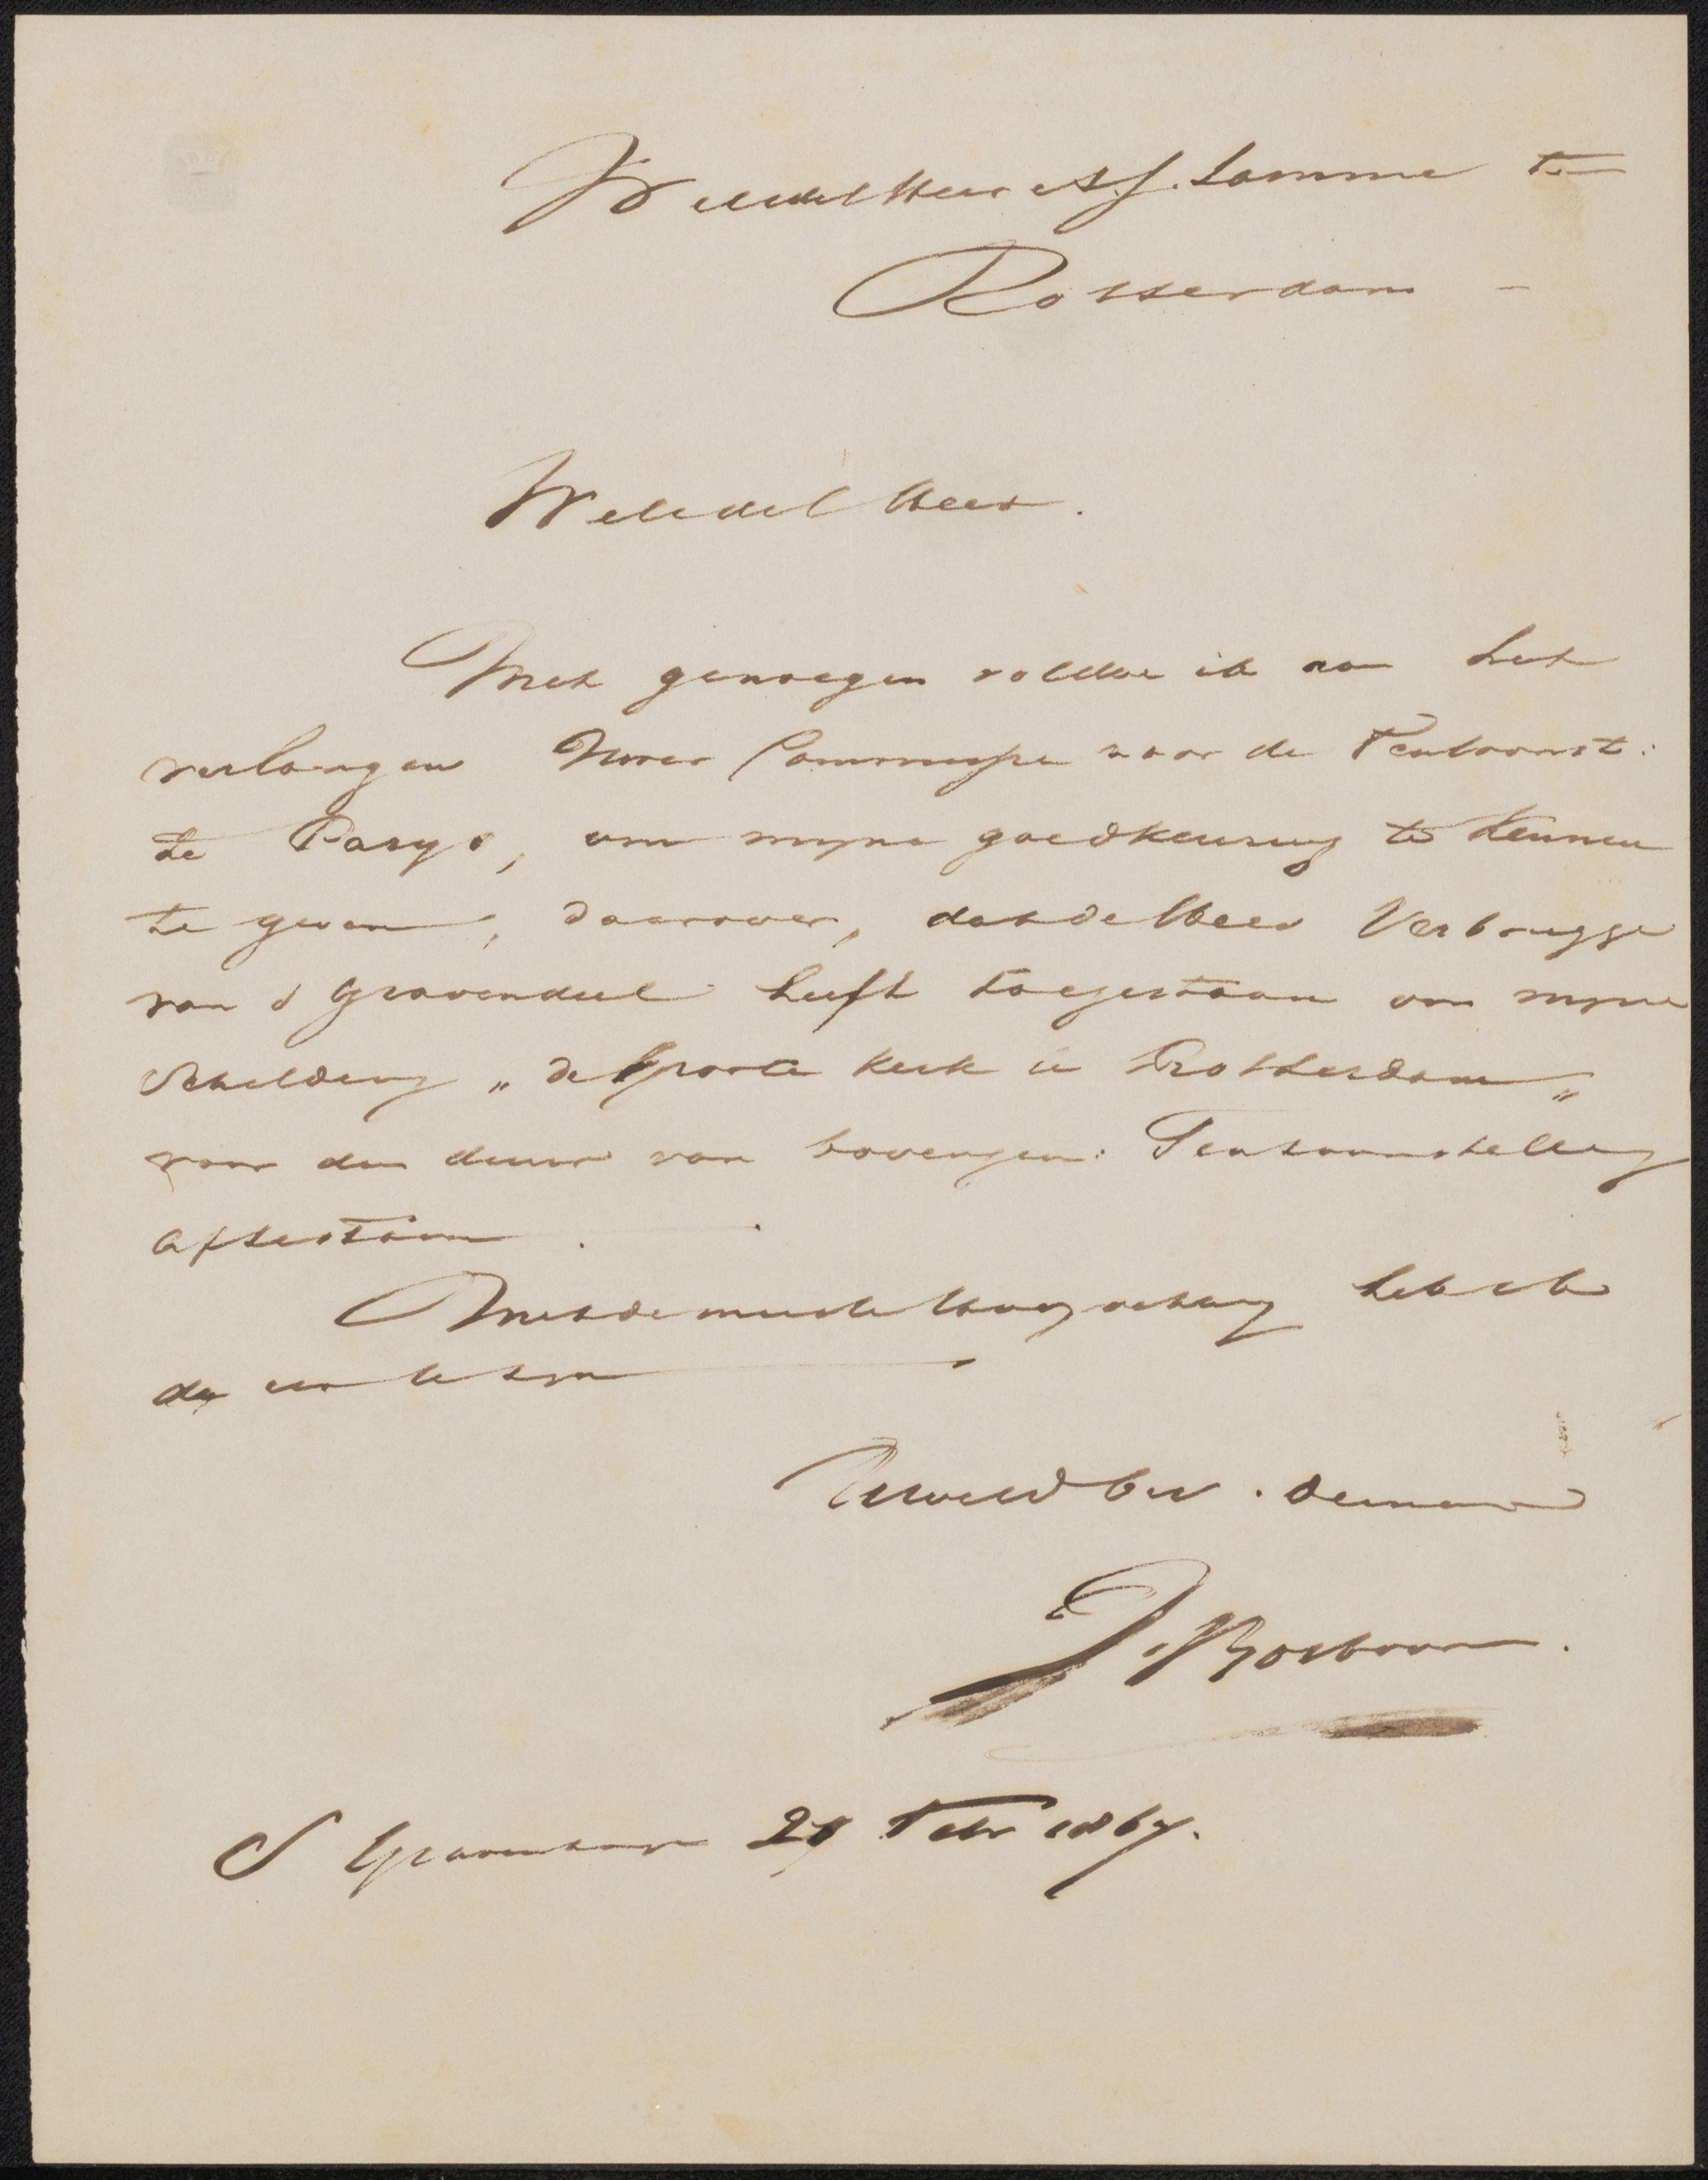 Weledel Heer A J. Lamme te
Rotterdam -
Weledel Heer.
Met genoegen voldoe ik aan het
verlangen Uwer Commissie voor de Tentoonst:
te Parys, om myne goedkeuring te kennen
te geven, daarover, dat de Heer Verbrugge
van s Gravendeel heeft toegestaan om myne
Schildery „ de Groote Kerk in Rotterdam „
voor den duur van bovengen: Tentoonstelling
aftestaan.
Met de meeste Hoogachting heb ik
de eer te zyn
UwelEd Gew. dienaar
J. Bosboom.
S Gravenhage 21 Febr 1867.